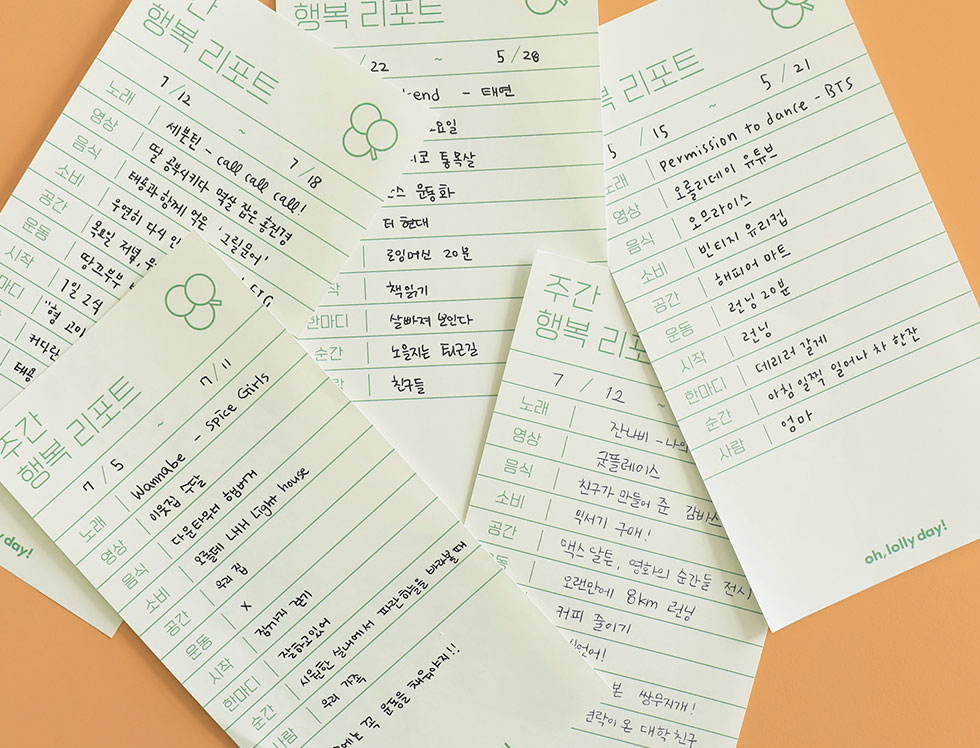 주간
행복 리포트
7/12 ~ 7/18
노래 세븐틴 - call call call!
영상 딸 공부시키다 멱살 잡은 홍진경
음식 태용과 함께 먹은 '그릴문어'
소비 우연히 다시 만
공간 목요일 저녁,
운동 땅끄부부
시작 1일 2식
한마디 "형
커다란
태용
행복 리포트
/22 ~ 5/28
kend - 태연
요일
통목살
운동화
터 현대
로잉머신 20분
책읽기
한마디 살빠져 보인다
순간 노을지는 퇴근길
친구들
행복 리포트
5/15 ~ 5/21
노래 permission to dance - BTS
영상 오롤리데이 유튜브
음식 오므라이스
소비 빈티지 유리컵
공간 해피어 마트
운동 런닝 20분
시작 런닝
한마디 데리러 갈게
순간 아침 일찍 일어나 차 한잔
사람 엄마
oh, lolly day!
주간
행복 리포트
7/5 ~ 7/11
노래 Wannabe - Spice Girls
영상 이웃집
음식 다운타우너 햄버거
소비 오롤데 LHH Light house
공간 우리 집
운동 x
시작 집까지 걷기
한마디 잘하고있어
순간 시원한 실내에서 파란하늘을 바라볼 때
사람 우리 가족
에는 꼭 운동을 채워야지!!
주간
행복 리포
7/12 ~
노래 잔나비 - 나의
영상 굿플레이스
음식 친구가 만들어 준 감바스
소비 믹서기 구매!
공간 맥스 달튼, 영화의 순간들 전시
운동 오랜만에 8km 런닝
커피 줄이기
본 쌍무지개!
연락이 온 대학 친구
lly day!